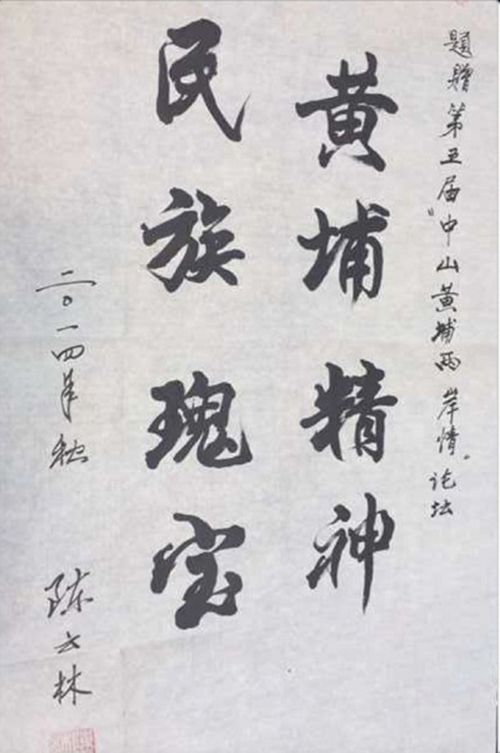 题赠第五届"中山黄埔两岸情"论坛
黄埔精神
民族瑰宝
二〇一四年秋
陈云林